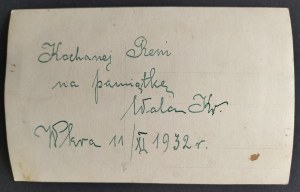 Kochanej Reni
na pamiątkę
Wala Kr.
Wkra 11/XI 1932 r.